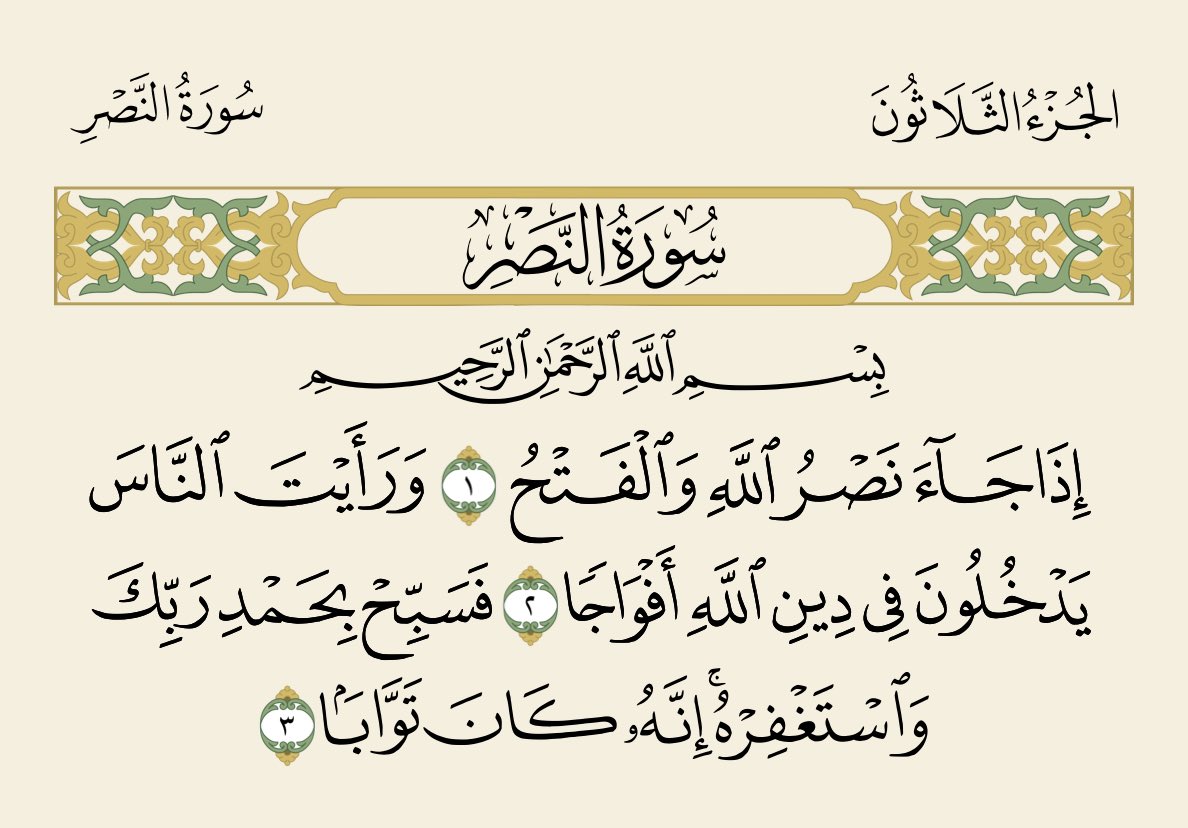 الجُزْءُ الثَّلَاثُونَ
سُورَةُ النَّصْرِ
سُورَةُ النَّصْرِ
بِسْمِ ٱللَّهِ ٱلرَّحْمَٰنِ ٱلرَّحِيمِ
إِذَا جَآءَ نَصْرُ ٱللَّهِ وَٱلْفَتْحُ ١ وَرَأَيْتَ ٱلنَّاسَ
يَدْخُلُونَ فِى دِينِ ٱللَّهِ أَفْوَاجًا ٢ فَسَبِّحْ بِحَمْدِ رَبِّكَ
وَٱسْتَغْفِرْهُ ۚ إِنَّهُۥ كَانَ تَوَّابَۢا ٣